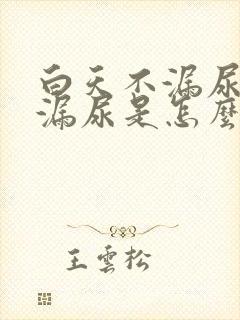 白天不漏尿
漏尿是怎麼
王雲松